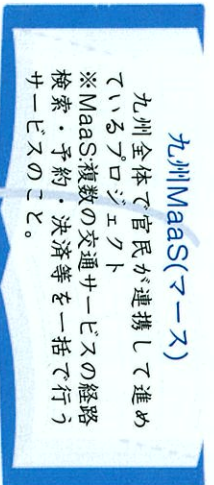 九州MaaS(マース)
九州全体で官民が連携して進め
ているプロジェクト
※MaaS:複数の交通サービスの経路
検索・予約・決済等を一括で行う
サービスのこと。